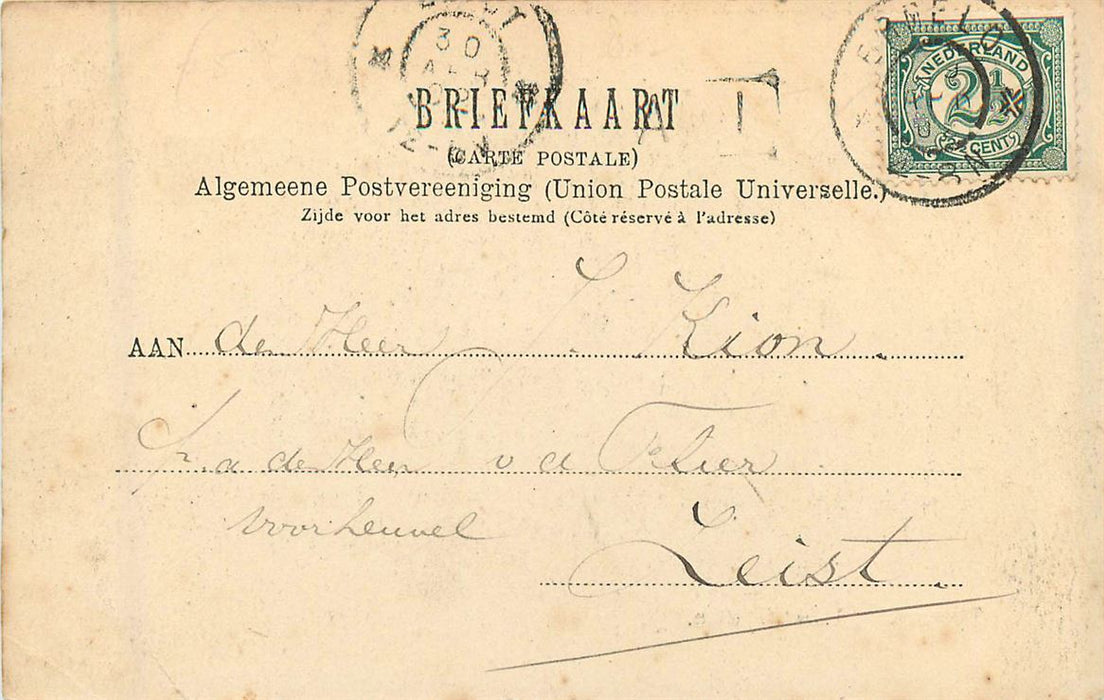 30
APR
12-
ERMELO
NEDERLAND
2½
CENT
8-
BRIEFKAART
(CARTE POSTALE)
Algemeene Postvereeniging (Union Postale Universelle.)
Zijde voor het adres bestemd (Côté réservé à l'adresse)
AAN de Heer J. Kion.
p. a de Heer v d
Voorheuvel Zeist.